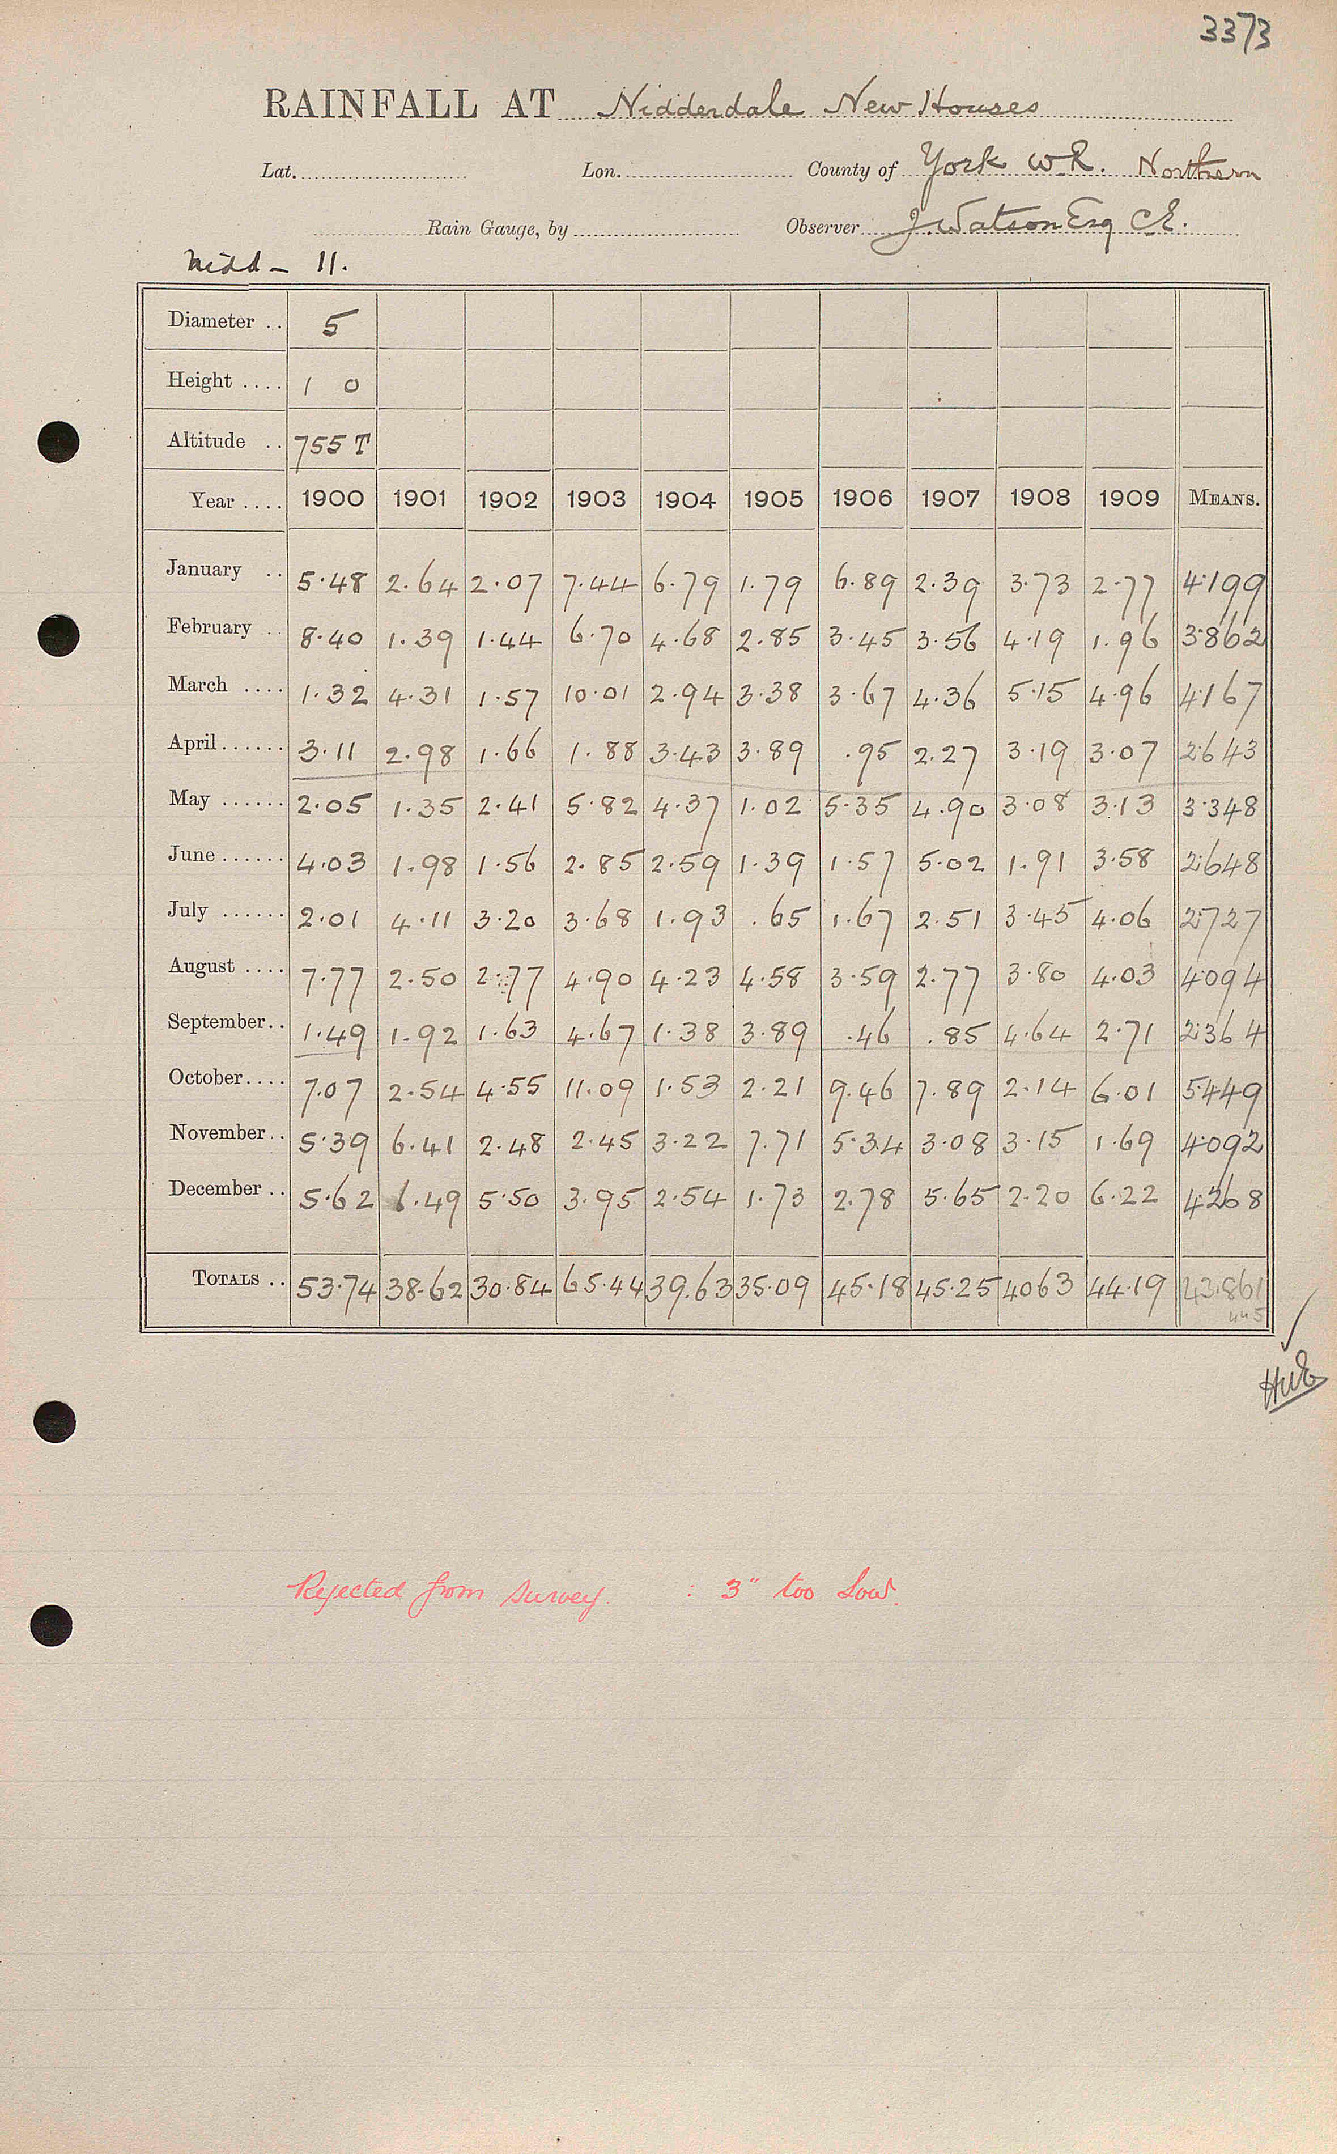 3373
RAINFALL AT Nidderdale New Houses
Lat. Lon. County of York W.R. Northern
Rain Gauge, by Observer J. Watson Esq C.E.
Nidd - 11.
Diameter .. 5
Height .... 1 0
Altitude .. 755 T
Year .... 1900 1901 1902 1903 1904 1905 1906 1907 1908 1909 MEANS.
January .. 5.48 2.64 2.07 7.44 6.79 1.79 6.89 2.39 3.73 2.77 4.199
February .. 8.40 1.39 1.44 6.70 4.68 2.85 3.45 3.56 4.19 1.96 3.862
March .... 1.32 4.31 1.57 10.01 2.94 3.38 3.67 4.36 5.15 4.96 4.167
April...... 3.11 2.98 1.66 1.88 3.43 3.89 .95 2.27 3.19 3.07 2.643
May ...... 2.05 1.35 2.41 5.82 4.37 1.02 5.35 4.90 3.08 3.13 3.348
June...... 4.03 1.98 1.56 2.85 2.59 1.39 1.57 5.02 1.91 3.58 2.648
July ...... 2.01 4.11 3.20 3.68 1.93 .65 1.67 2.51 3.45 4.06 2.727
August .... 7.77 2.50 2.77 4.90 4.23 4.58 3.59 2.77 3.80 4.03 4.094
September.. 1.49 1.92 1.63 4.67 1.38 3.89 .46 .85 4.64 2.71 2.364
October.... 7.07 2.54 4.55 11.09 1.53 2.21 9.46 7.89 2.14 6.01 5.449
November.. 5.39 6.41 2.48 2.45 3.22 7.71 5.34 3.08 3.15 1.69 4.092
December .. 5.62 6.49 5.50 3.95 2.54 1.73 2.78 5.65 2.20 6.22 4.268
TOTALS .. 53.74 38.62 30.84 65.44 39.63 35.09 45.18 45.25 4063 44.19 43.861
445
Rejected from survey. : 3" too low.